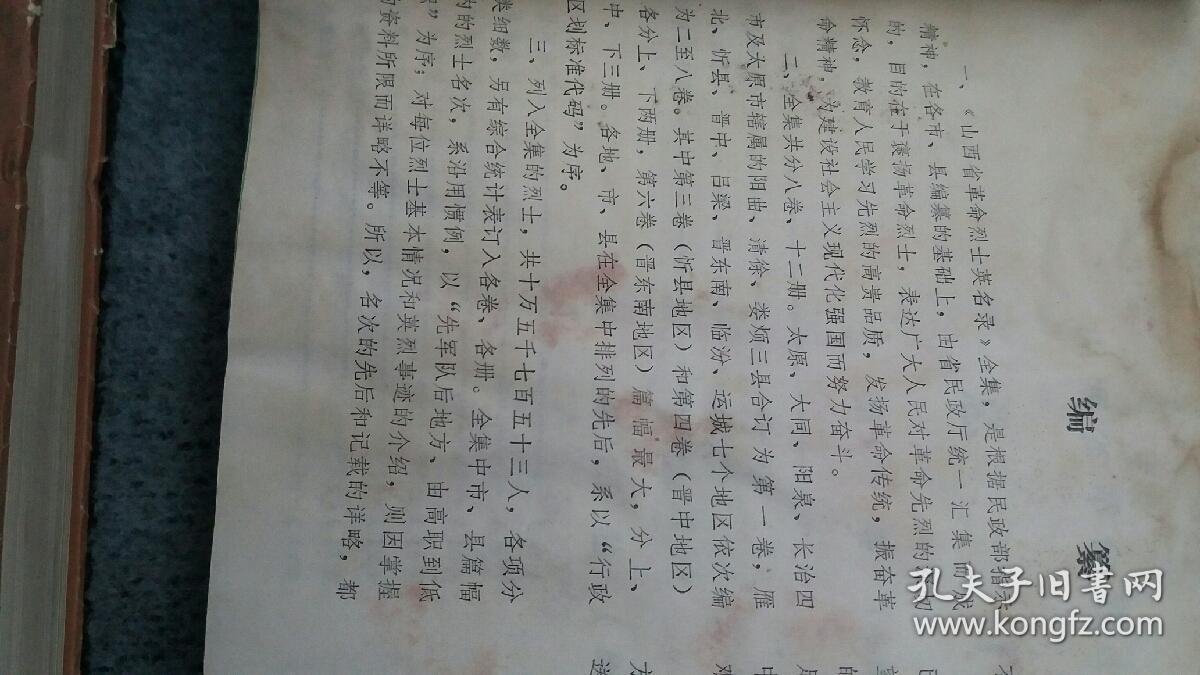 编 纂
一、《山西省革命烈士英名录》全集，是根据民政部指示
精神，在各市、县编纂的基础上，由省民政厅统一汇集而成
的，目的在于褒扬革命烈士，表达广大人民对革命先烈的
怀念，教育人民学习先烈的高贵品质，发扬革命传统，振奋革
命精神，为建设社会主义现代化强国而努力奋斗。
二、全集共分八卷、十三册。太原、大同、阳泉、长治四
市及太原市辖属的阳曲、清徐、娄烦三县合订为第一卷，雁
北、忻县、晋中、吕梁、晋东南、临汾、运城七个地区依次编
为二至八卷。其中第三卷（忻县地区）和第四卷（晋中地区）
各分上、下两册，第六卷（晋东南地区）篇幅最大，分上、
中、下三册。各地、市、县在全集中排列的先后，系以“行政
区划标准代码”为序。
三、列入全集的烈士，共十万五千七百五十三人，各项分
类细数，另有综合统计表订入各卷、各册。全集中市、县篇幅
内的烈士名次，系沿用惯例，以“先军队后地方、由高职到低
”为序；对每位烈士基本情况和英烈事迹的介绍，则因掌握
的资料所限而详略不等。所以，名次的先后和记载的详略，都
孔夫子旧书网
www.kongfz.com